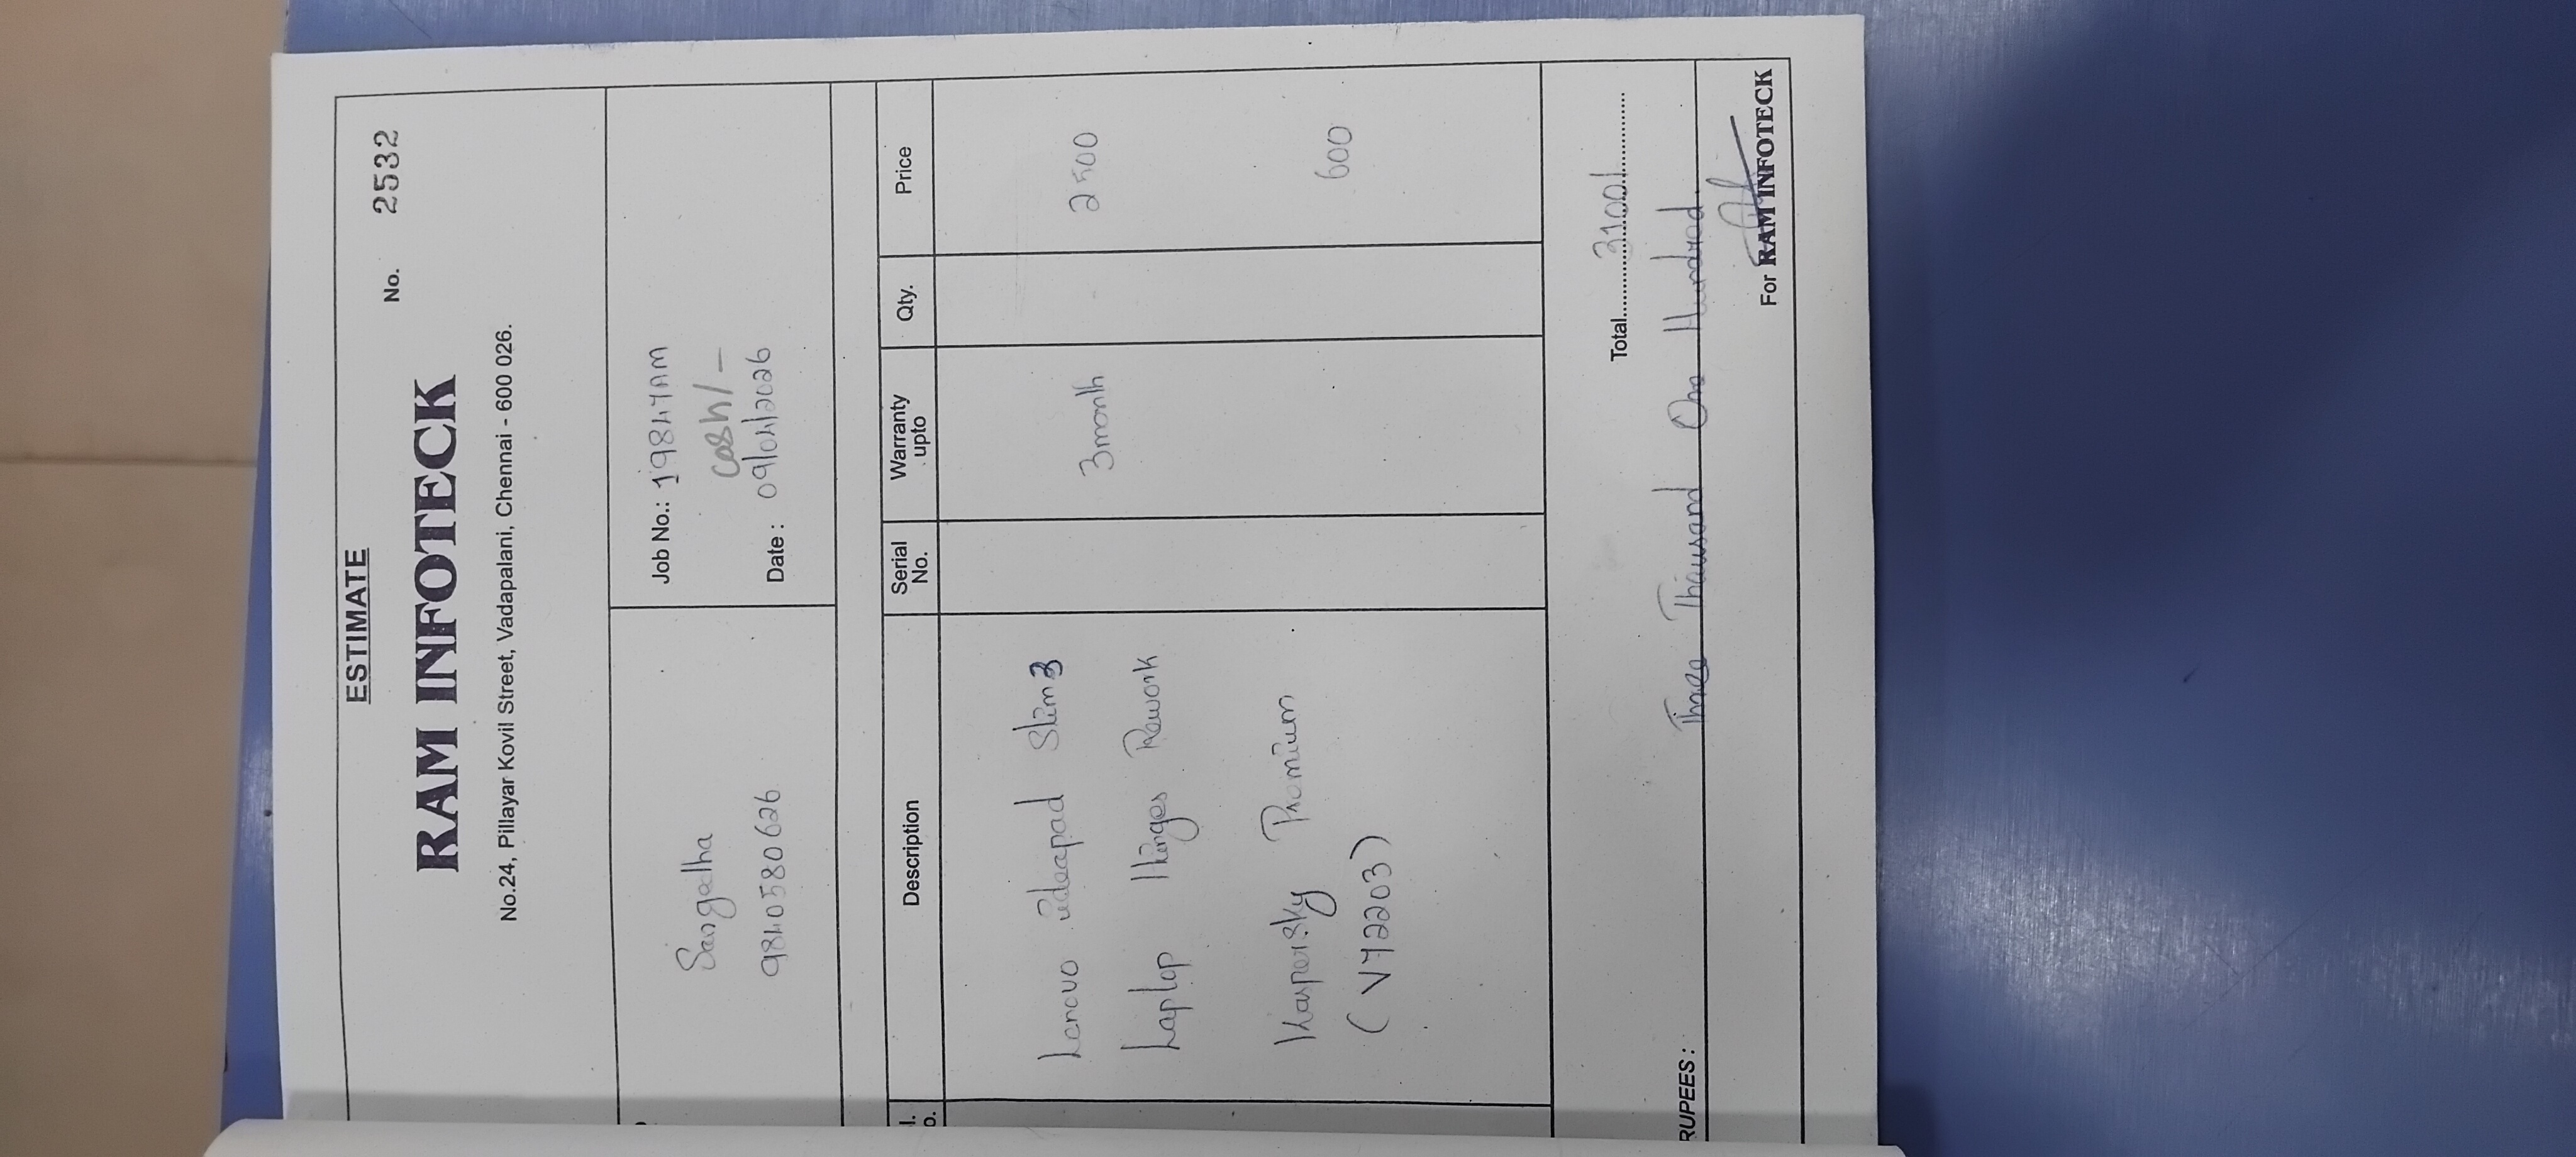 ESTIMATE
No. 2532
RAM INFOTECK
No.24, Pillayar Kovil Street, Vadapalani, Chennai - 600 026.
Sangatha
9840580626
Job No.: 19847AM
Cash/-
Date : 09/04/2026
Description Serial No. Warranty upto Qty. Price
Lenovo ideapad Slim3
Laptop Hinges Rework 3month 2500
Kaspersky Premium 600
(V72203)
Total 3100/
RUPEES : Three Thousand One Hundred
For RAM INFOTECK